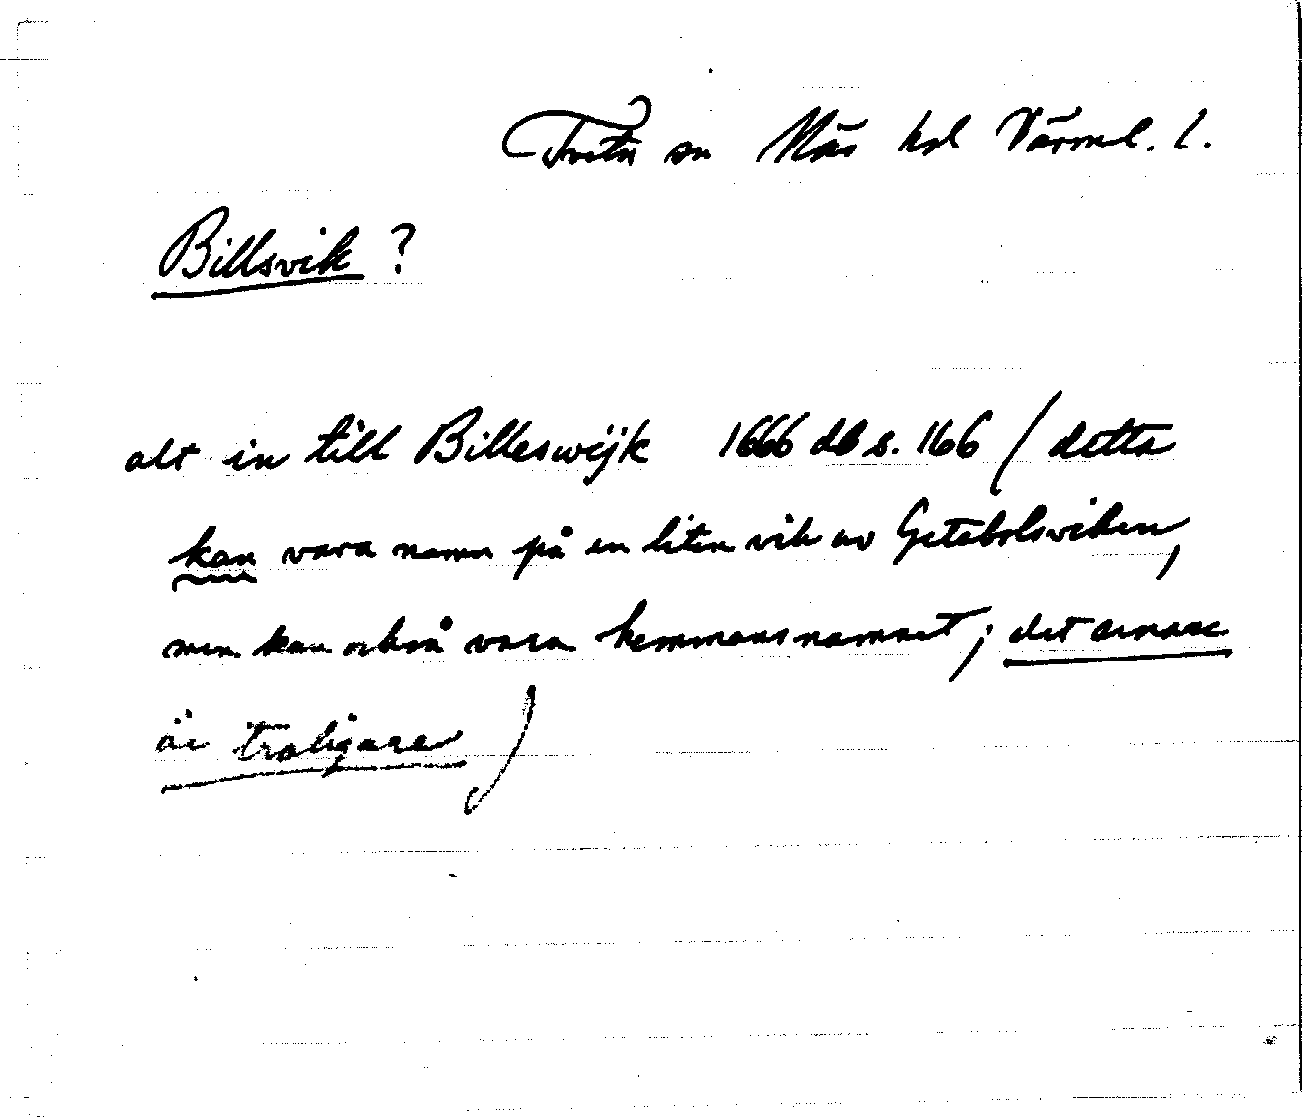 Tveta sn Näs hd Värml. l.
Billsvik ?
alt in till Billeswijk 1666 db s. 166 / detta
kan vara namn på en liten vik av Getebolsviken,
men kan också vara hemmansnamnet; det senare
är troligare )